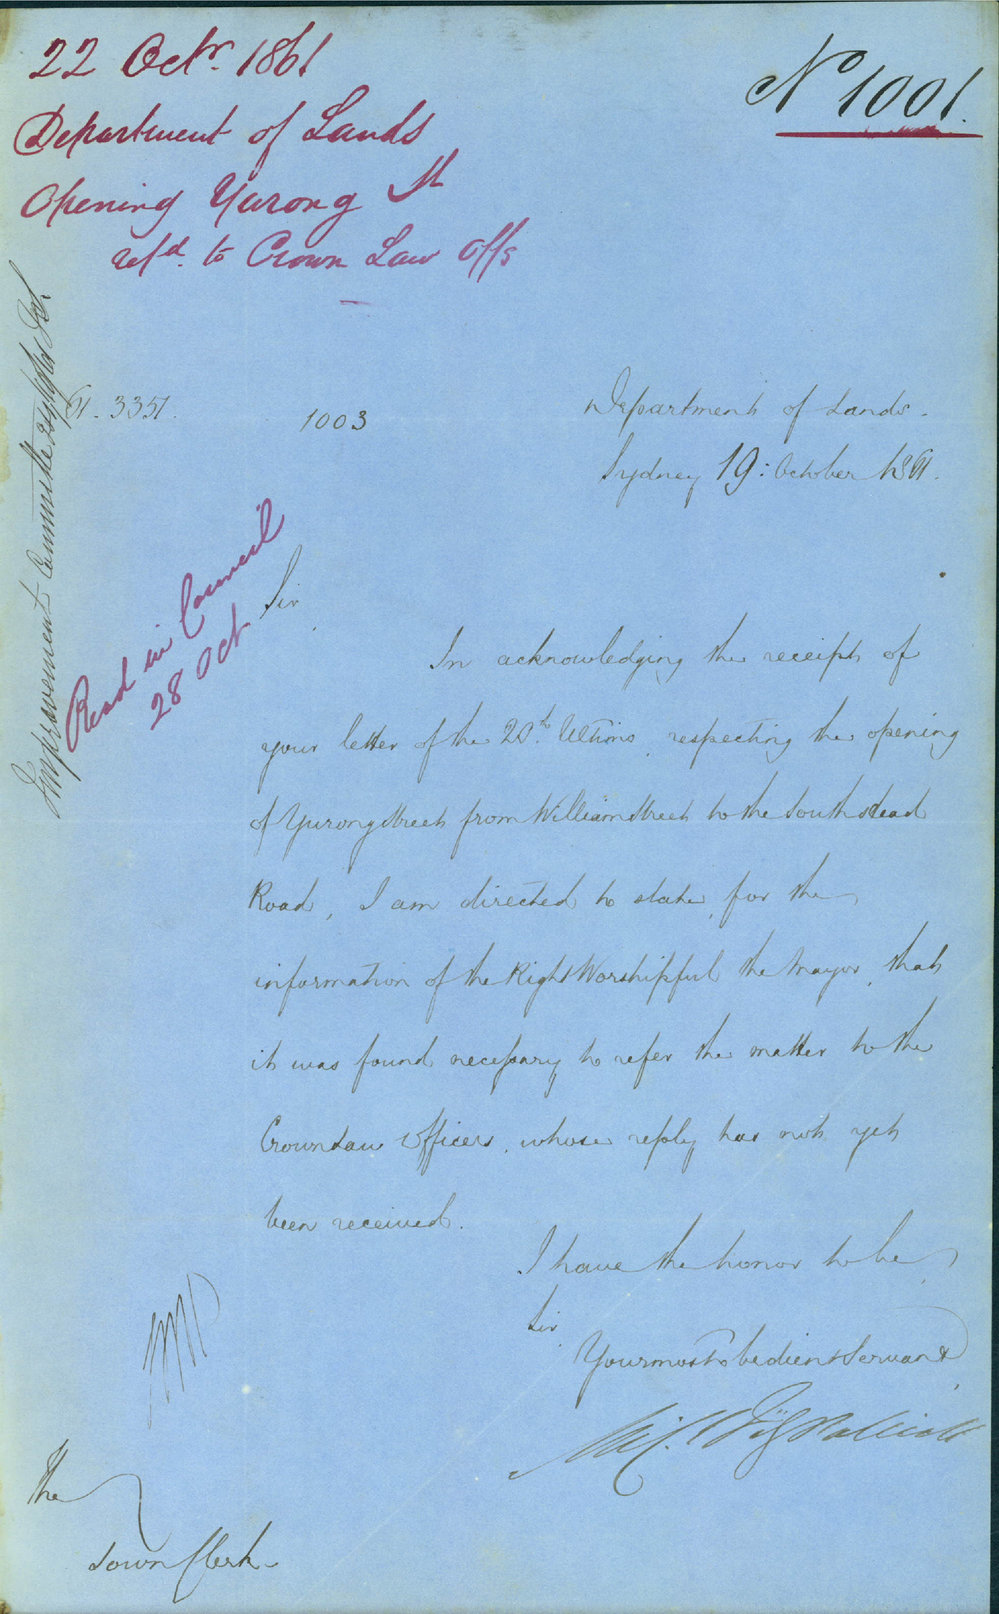 22 Octr. 1861
No 1001.
Department of Lands
Opening Yurong St
refd. to Crown Law Offs
61. 3351.
1003
Department of Lands.
Sydney 19: October 1861.
Improvement Committee
Read in Council
28 Oct
Sir
In acknowledging the receipt of
your letter of the 20th. Ultimo, respecting the opening
of Yurong Street from William Street to the South Head
Road, I am directed to state, for the
information of the Right Worshipful the Mayor, that
it was found necessary to refer the matter to the
Crown Law Officers, whose reply has not yet
been received.
I have the honor to be,
Sir
Your most obedient Servant,
Mich Fitzpatrick
The
Town Clerk